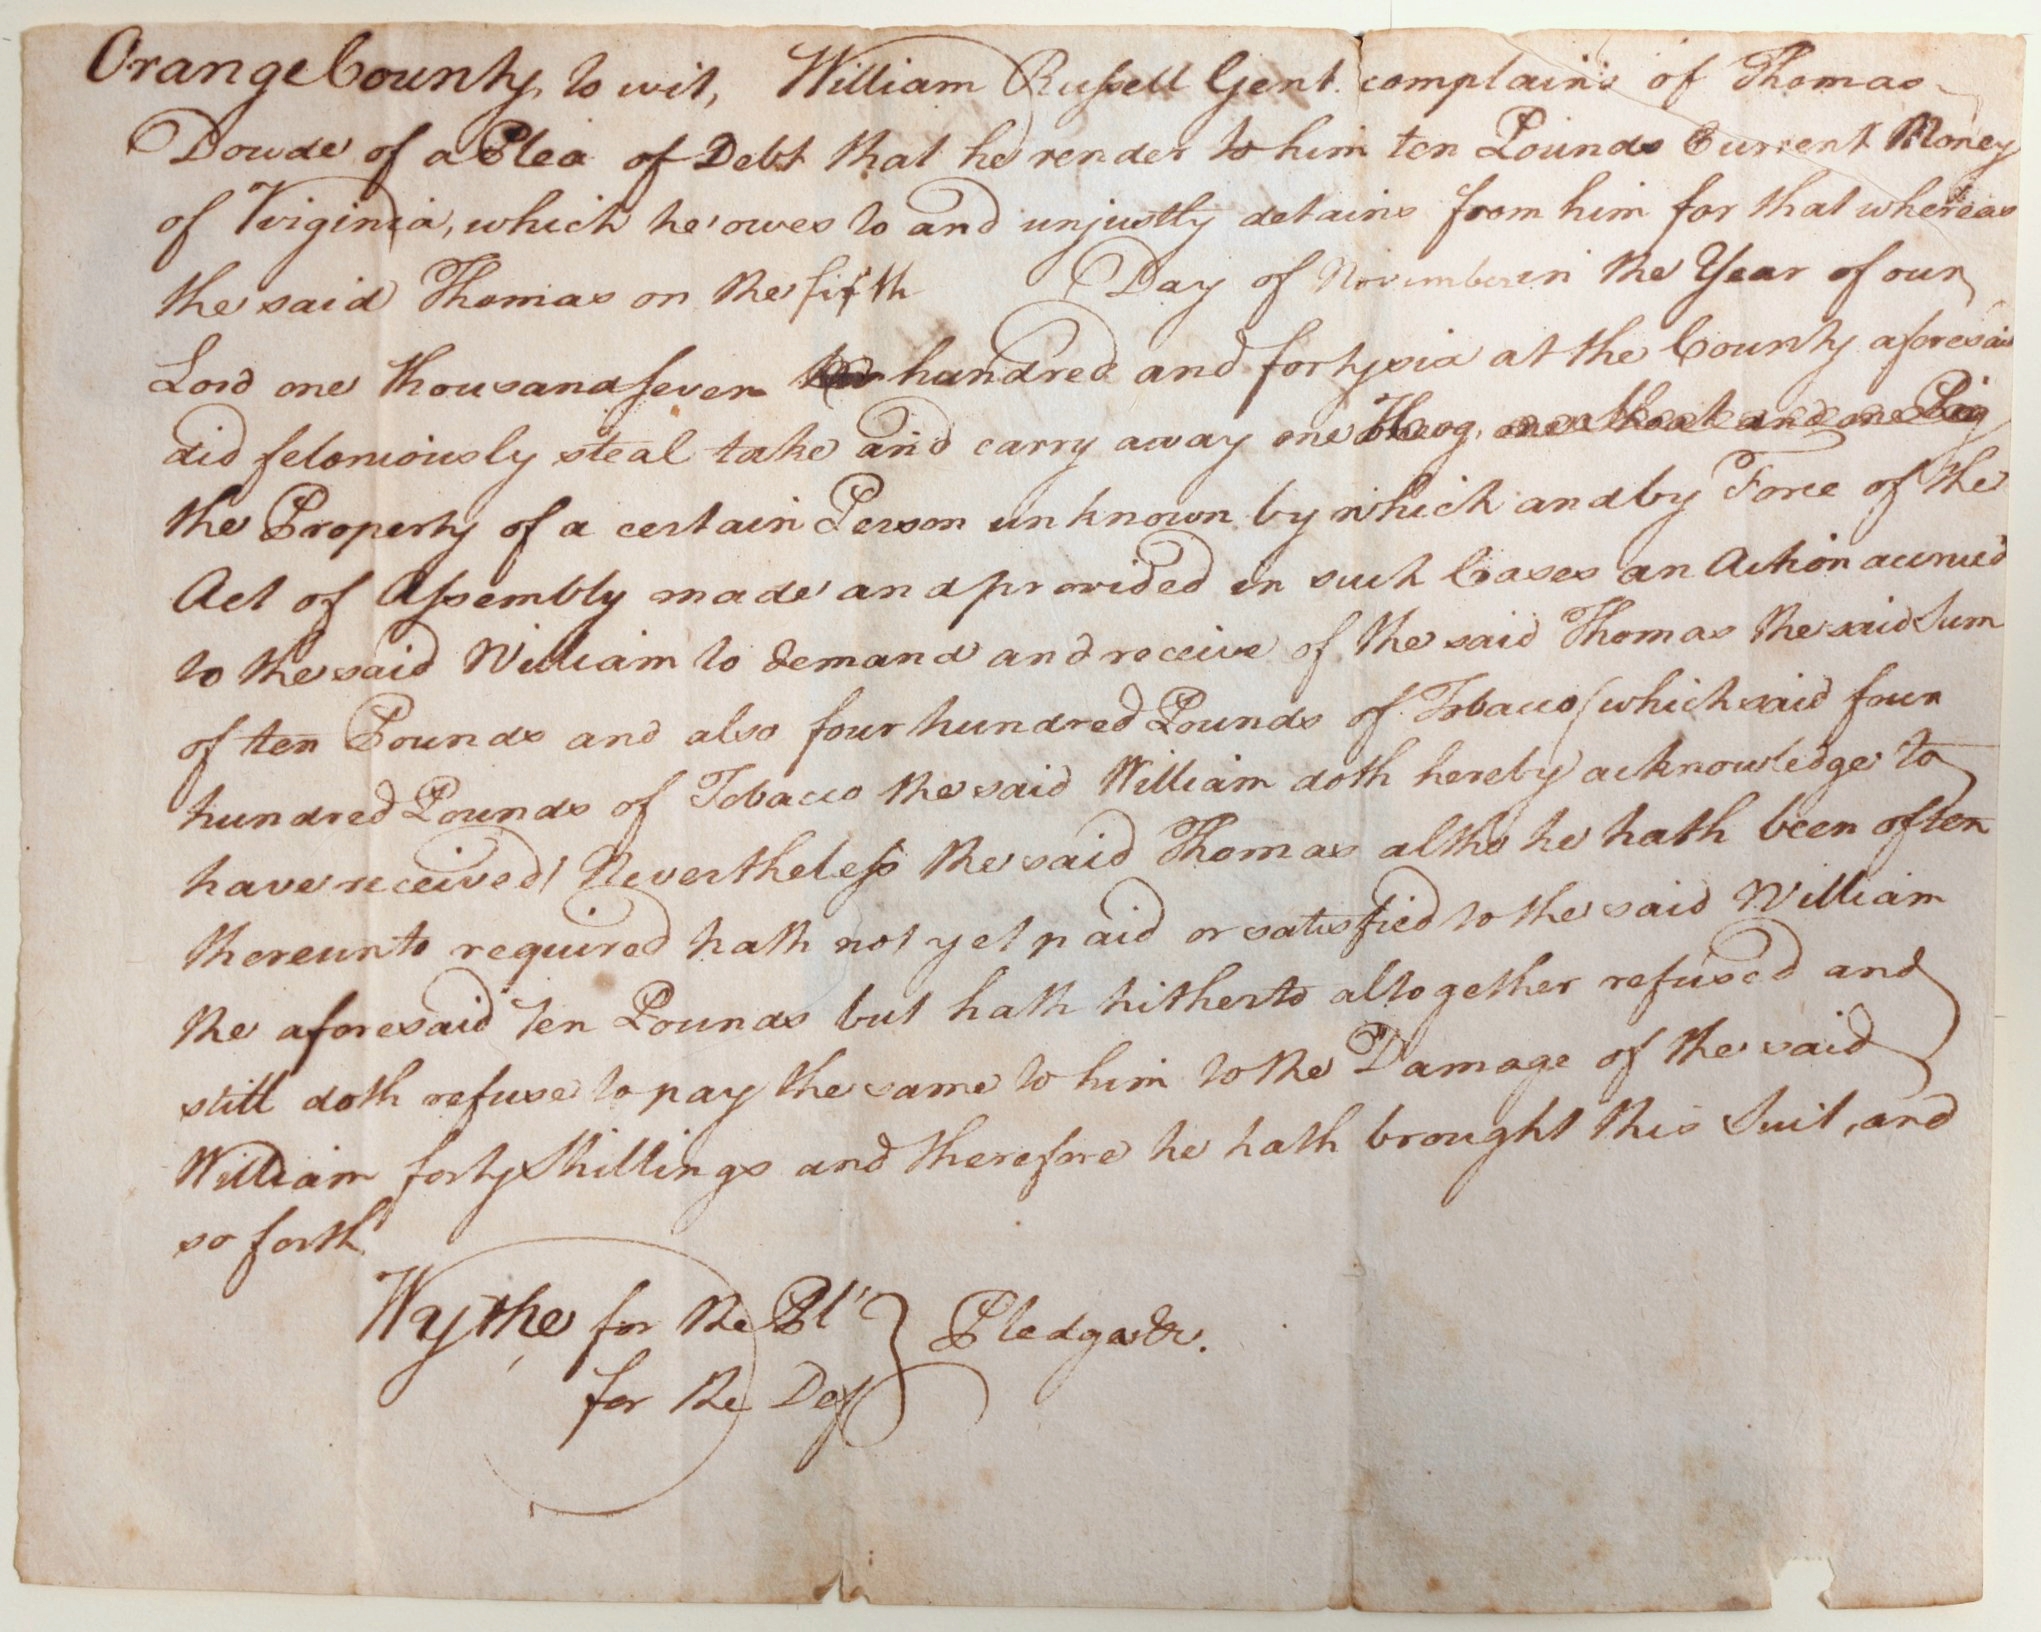 Orange County, to wit, William Russell Gent. complains of Thomas
Dowde of a Plea of Debt that he render to him ten Pounds Current Money
of Virginia, which he owes to and unjustly detains from him for that whereas
the said Thomas on the fifth Day of November in the Year of our
Lord one thousand seven hundred and forty six at the County aforesaid
did feloniously steal take and carry away one Hog, one Shoat and one Pig
the Property of a certain Person unknown by which and by Force of the
Act of Assembly made and provided in such Cases an Action accrued
to the said William to demand and receive of the said Thomas the said Sum
of ten Pounds and also four hundred Pounds of Tobacco (which said four
hundred Pounds of Tobacco the said William doth hereby acknowledge to
have received) Nevertheless the said Thomas altho he hath been often
thereunto required hath not yet paid or satisfied to the said William
the aforesaid ten Pounds but hath hitherto altogether refused and
still doth refuse to pay the same to him to the Damage of the said
William forty Shillings and therefore he hath brought this Suit, and
so forth
Wythe for the Plt. Pledges &c.
for the Def